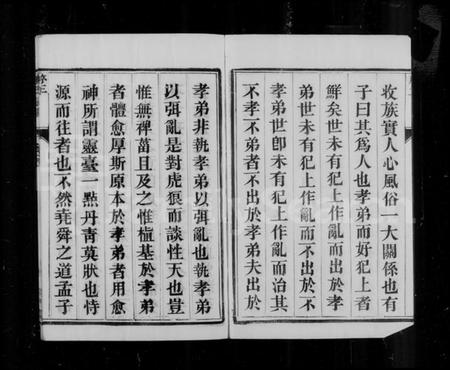 收族實人心風俗一大關係也有
子曰其爲人也孝弟而好犯上者
鮮矣世未有犯上作亂而出於孝
弟世未有犯上作亂而不出於不
孝弟世卽未有犯上作亂而治其
不孝不弟者不出於孝弟夫出於
孝弟非執孝弟以弭亂也執孝弟
以弭亂是對虎狼而談性天也豈
惟無裨菑且及之惟植基於孝弟
者體愈厚斯原本於孝弟者用愈
神所謂靈臺一點丹靑莫狀也恃
源而往者也不然堯舜之道孟子